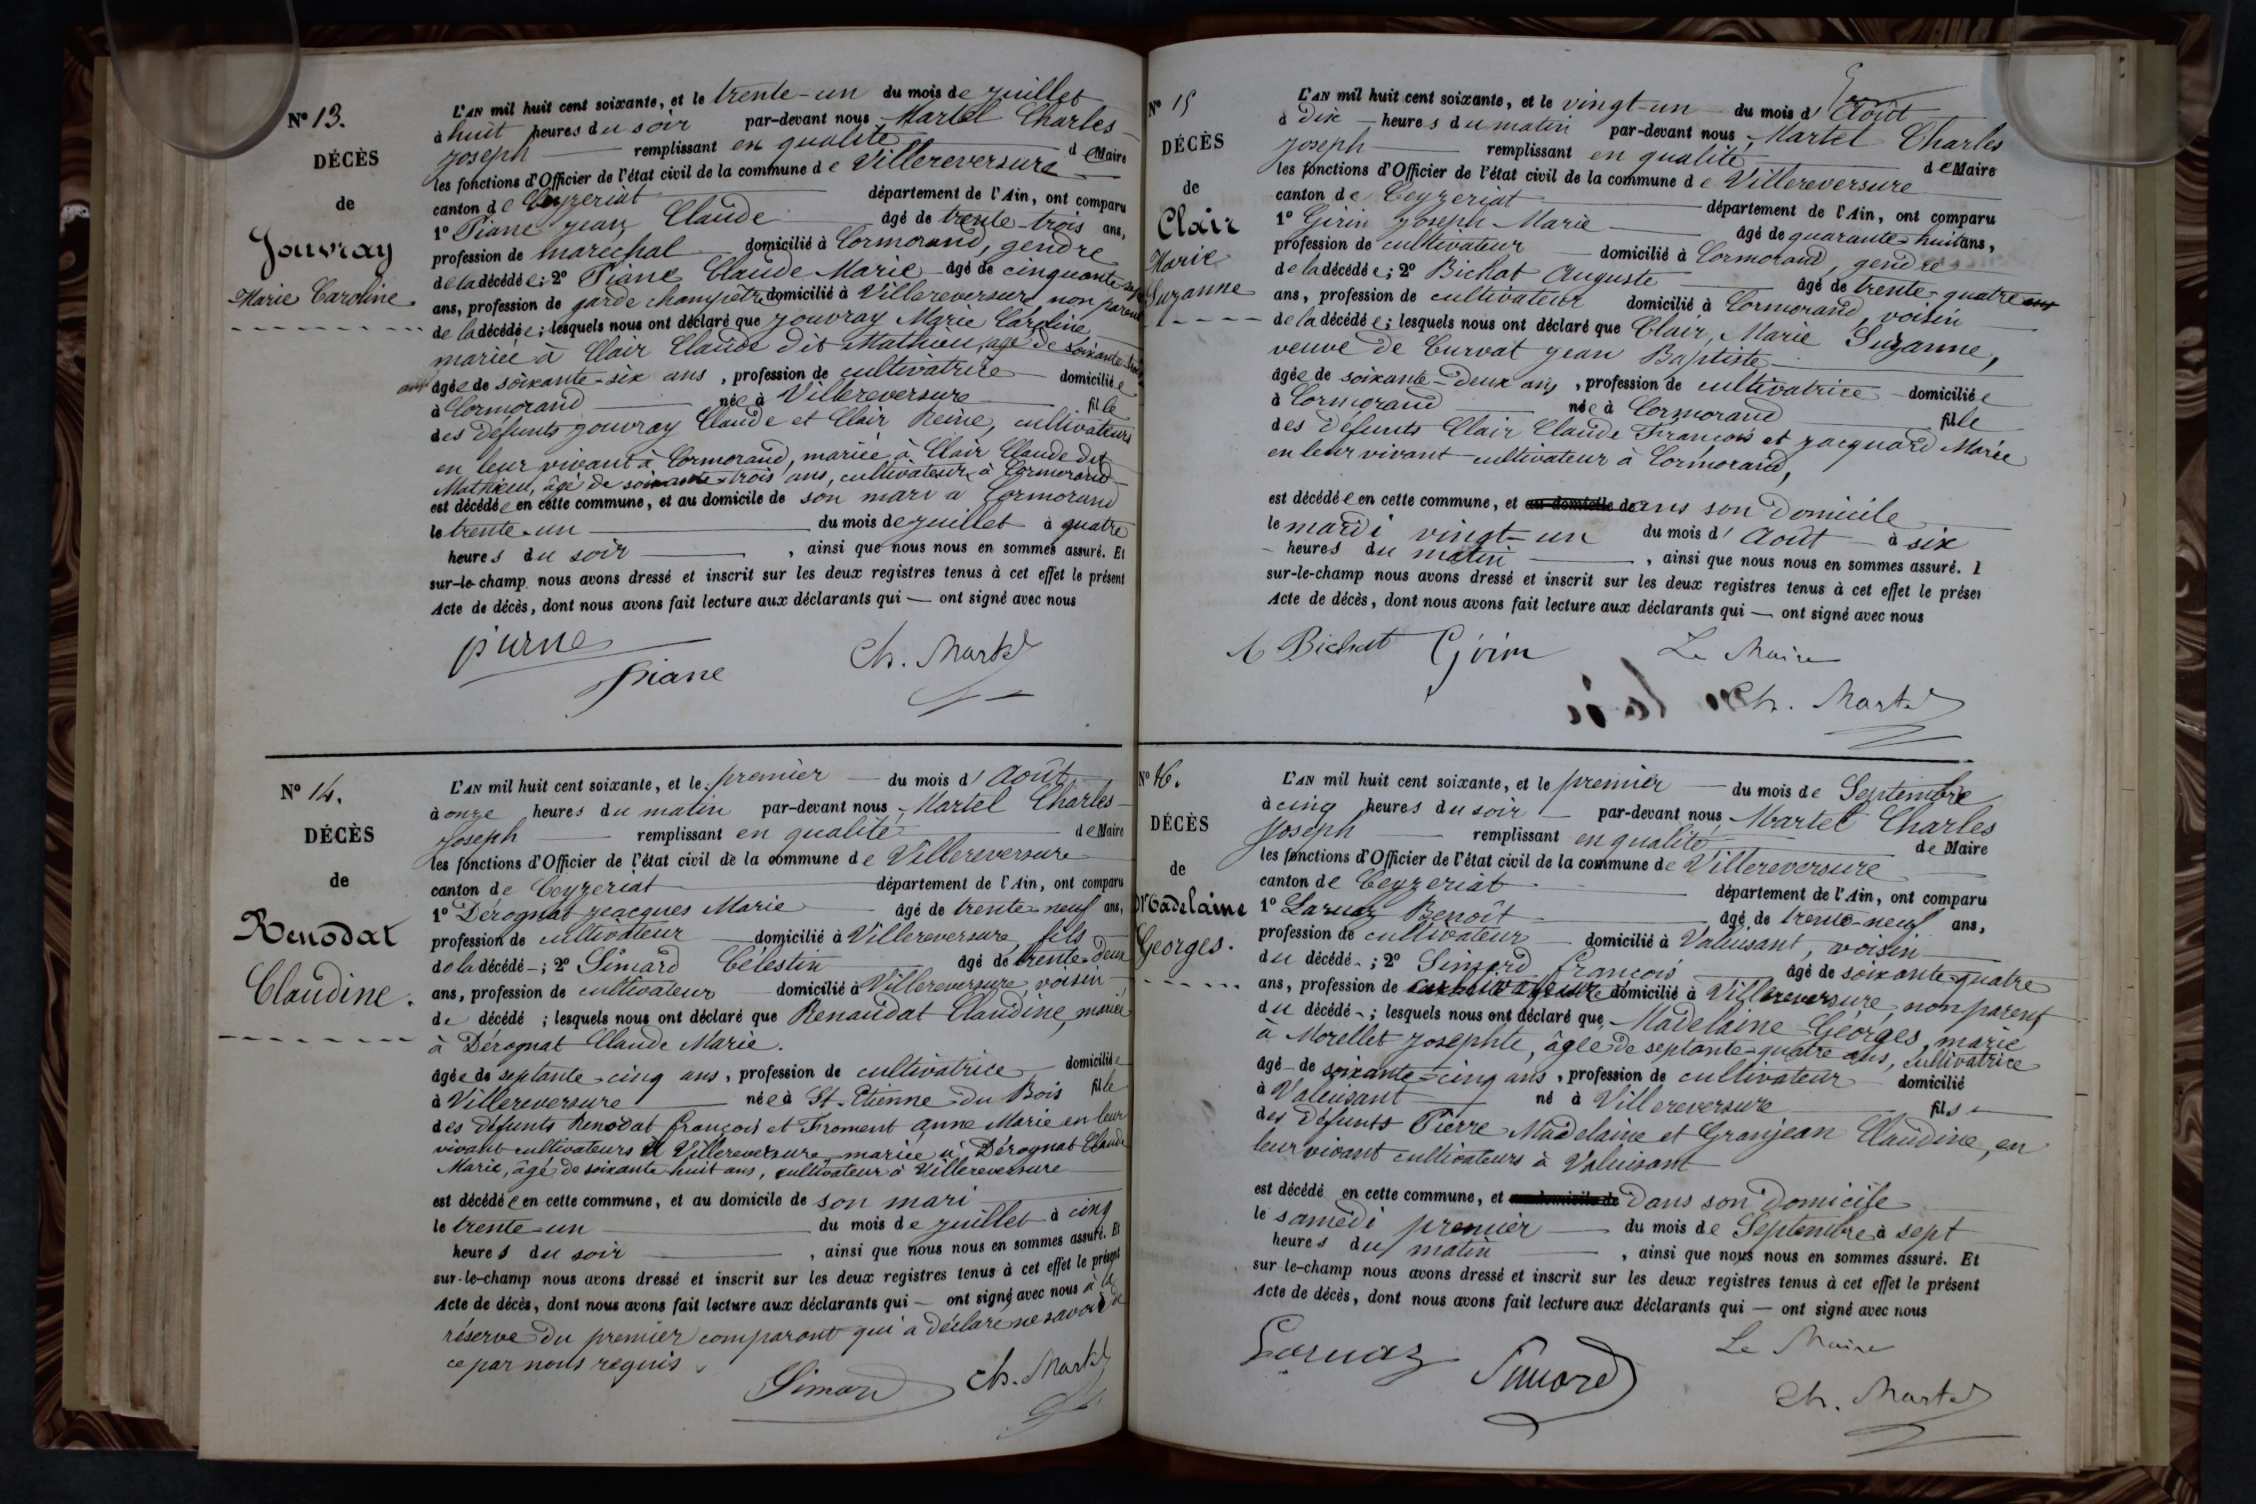 N° 13.
DÉCÈS
de
Jouvray
Marie Caroline
L'AN mil huit cent soixante, et le trente-un du mois de juillet
à huit heures du soir par-devant nous Martel Charles
Joseph remplissant en qualité de Maire
les fonctions d'Officier de l'état civil de la commune de Villereversure
canton de Ceyzeriat département de l'Ain, ont comparu
1° Piane Jean Claude âgé de trente-trois ans,
profession de maréchal domicilié à Cormorand, gendre
de la décédée; 2° Piane Claude Marie âgé de cinquante
ans, profession de garde champêtre domicilié à Villereversure non parent
de la décédée; lesquels nous ont déclaré que Jouvray Marie Caroline
mariée à Clair Claude dit Mathieu, age de soixante-trois
ans âgée de soixante-six ans, profession de cultivatrice domiciliée
à Cormorand née à Villereversure fille
des défunts Jouvray Claude et Clair Reine, cultivateurs
en leur vivant à Cormorand, mariée à Clair Claude dit
Mathieu, âgé de soixante-trois ans, cultivateur à Cormorand
est décédée en cette commune, et au domicile de son mari a Cormorand
le trente-un du mois de juillet à quatre
heures du soir, ainsi que nous nous en sommes assuré. Et
sur-le-champ nous avons dressé et inscrit sur les deux registres tenus à cet effet le présent
Acte de décès, dont nous avons fait lecture aux déclarants qui — ont signé avec nous
piane
Ch. Martel
N° 14.
DÉCÈS
de
Renodat
Claudine.
L'AN mil huit cent soixante, et le premier du mois d'Août
à onze heures du matin par-devant nous Martel Charles
Joseph remplissant en qualité de Maire
les fonctions d'Officier de l'état civil de la commune de Villereversure
canton de Ceyzeriat département de l'Ain, ont comparu
1° Dérognat Jacques Marie âgé de trente-neuf ans,
profession de cultivateur domicilié à Villereversure, fils
de la décédé; 2° Simard Célestin âgé de trente-deux
ans, profession de cultivateur domicilié à Villereversure, voisin
de décédé; lesquels nous ont déclaré que Renaudat Claudine, mariée
à Dérognat Claude Marie.
âgée de septante-cinq ans, profession de cultivatrice domiciliée
à Villereversure née à St-Etienne-du Bois fille
des défunts Renodat François et Froment Anne Marie en leur
vivant cultivateurs à Villereversure, mariée à Dérognat Claude
Marie, âgé de soixante-huit ans, cultivateur à Villereversure
est décédée en cette commune, et au domicile de son mari
le trente-un du mois de juillet à cinq
heures du soir, ainsi que nous nous en sommes assuré. Et
sur-le-champ nous avons dressé et inscrit sur les deux registres tenus à cet effet le présent
Acte de décès, dont nous avons fait lecture aux déclarants qui — ont signé avec nous à la
réserve du premier comparant qui a déclaré ne savoir de
ce par nous requis.
Simard
Ch. Martel
N° 15
DÉCÈS
de
Clair
Marie
Suzanne
L'AN mil huit cent soixante, et le vingt-un du mois d'Août
à dix heures du matin par-devant nous, Martel Charles
Joseph remplissant en qualité de Maire
les fonctions d'Officier de l'état civil de la commune de Villereversure
canton de Ceyzeriat département de l'Ain, ont comparu
1° Girin Joseph-Marie âgé de quarante-huit ans,
profession de cultivateur domicilié à Cormorand, gendre
de la décédée; 2° Bichat Auguste âgé de trente-quatre
ans, profession de cultivateur domicilié à Cormorand, voisin
de la décédée; lesquels nous ont déclaré que Clair, Marie Suzanne,
veuve de Curvat Jean Baptiste
âgée de soixante-deux ans, profession de cultivatrice domiciliée
à Cormorand née à Cormorand fille
des défunts Clair Claude François et Jacquard Marie
en leur vivant cultivateur à Cormorand,
est décédée en cette commune, et au domicile de dans son domicile
le mardi vingt-un du mois d'Août à six
heures du matin, ainsi que nous nous en sommes assuré.
sur-le-champ nous avons dressé et inscrit sur les deux registres tenus à cet effet le présen
Acte de décès, dont nous avons fait lecture aux déclarants qui — ont signé avec nous
A Bichat Girin Le Maire
Ch. Martel
N° 16.
DÉCÈS
de
Madelaine
Georges.
L'AN mil huit cent soixante, et le premier du mois de Septembre
à cinq heures du soir par-devant nous, Martel Charles
Joseph remplissant en qualité de Maire
les fonctions d'Officier de l'état civil de la commune de Villereversure
canton de Ceyzeriat département de l'Ain, ont comparu
1° Larnaz Benoît âgé de trente-neuf ans,
profession de cultivateur domicilié à Valuisant, voisin
du décédé; 2° Simard François âgé de soixante-quatre
ans, profession de domicilié à Villereversure, non parent
du décédé; lesquels nous ont déclaré que Madelaine Georges, marié
à Morellet Josephte, âgée de septante-quatre ans, cultivatrice
âgé de soixante-cinq ans, profession de cultivateur domicilié
à Valuisant né à Villereversure fils
des défunts Pierre Madelaine et Granjean Claudine, en
leur vivant cultivateurs à Valuisant
est décédé en cette commune, et au domicile de dans son domicile
le samedi premier du mois de Septembre à sept
heures du matin, ainsi que nous nous en sommes assuré. Et
sur-le-champ nous avons dressé et inscrit sur les deux registres tenus à cet effet le présent
Acte de décès, dont nous avons fait lecture aux déclarants qui — ont signé avec nous
Larnaz Simard Le Maire
Ch. Martel